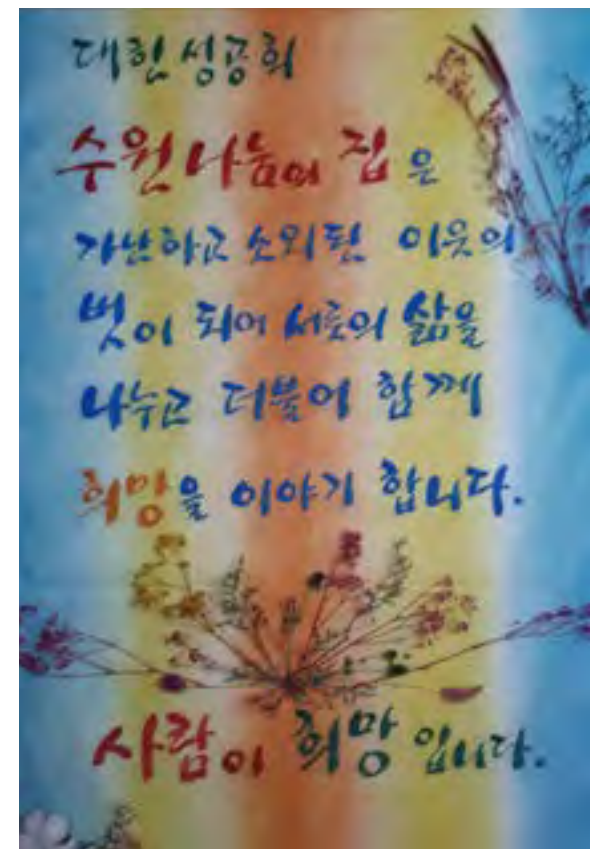 대한성공회
수원나눔의 집은
가난하고 소외된 이웃의
벗이 되어 서로의 삶을
나누고 더불어 함께
희망을 이야기 합니다.
사람이 희망입니다.